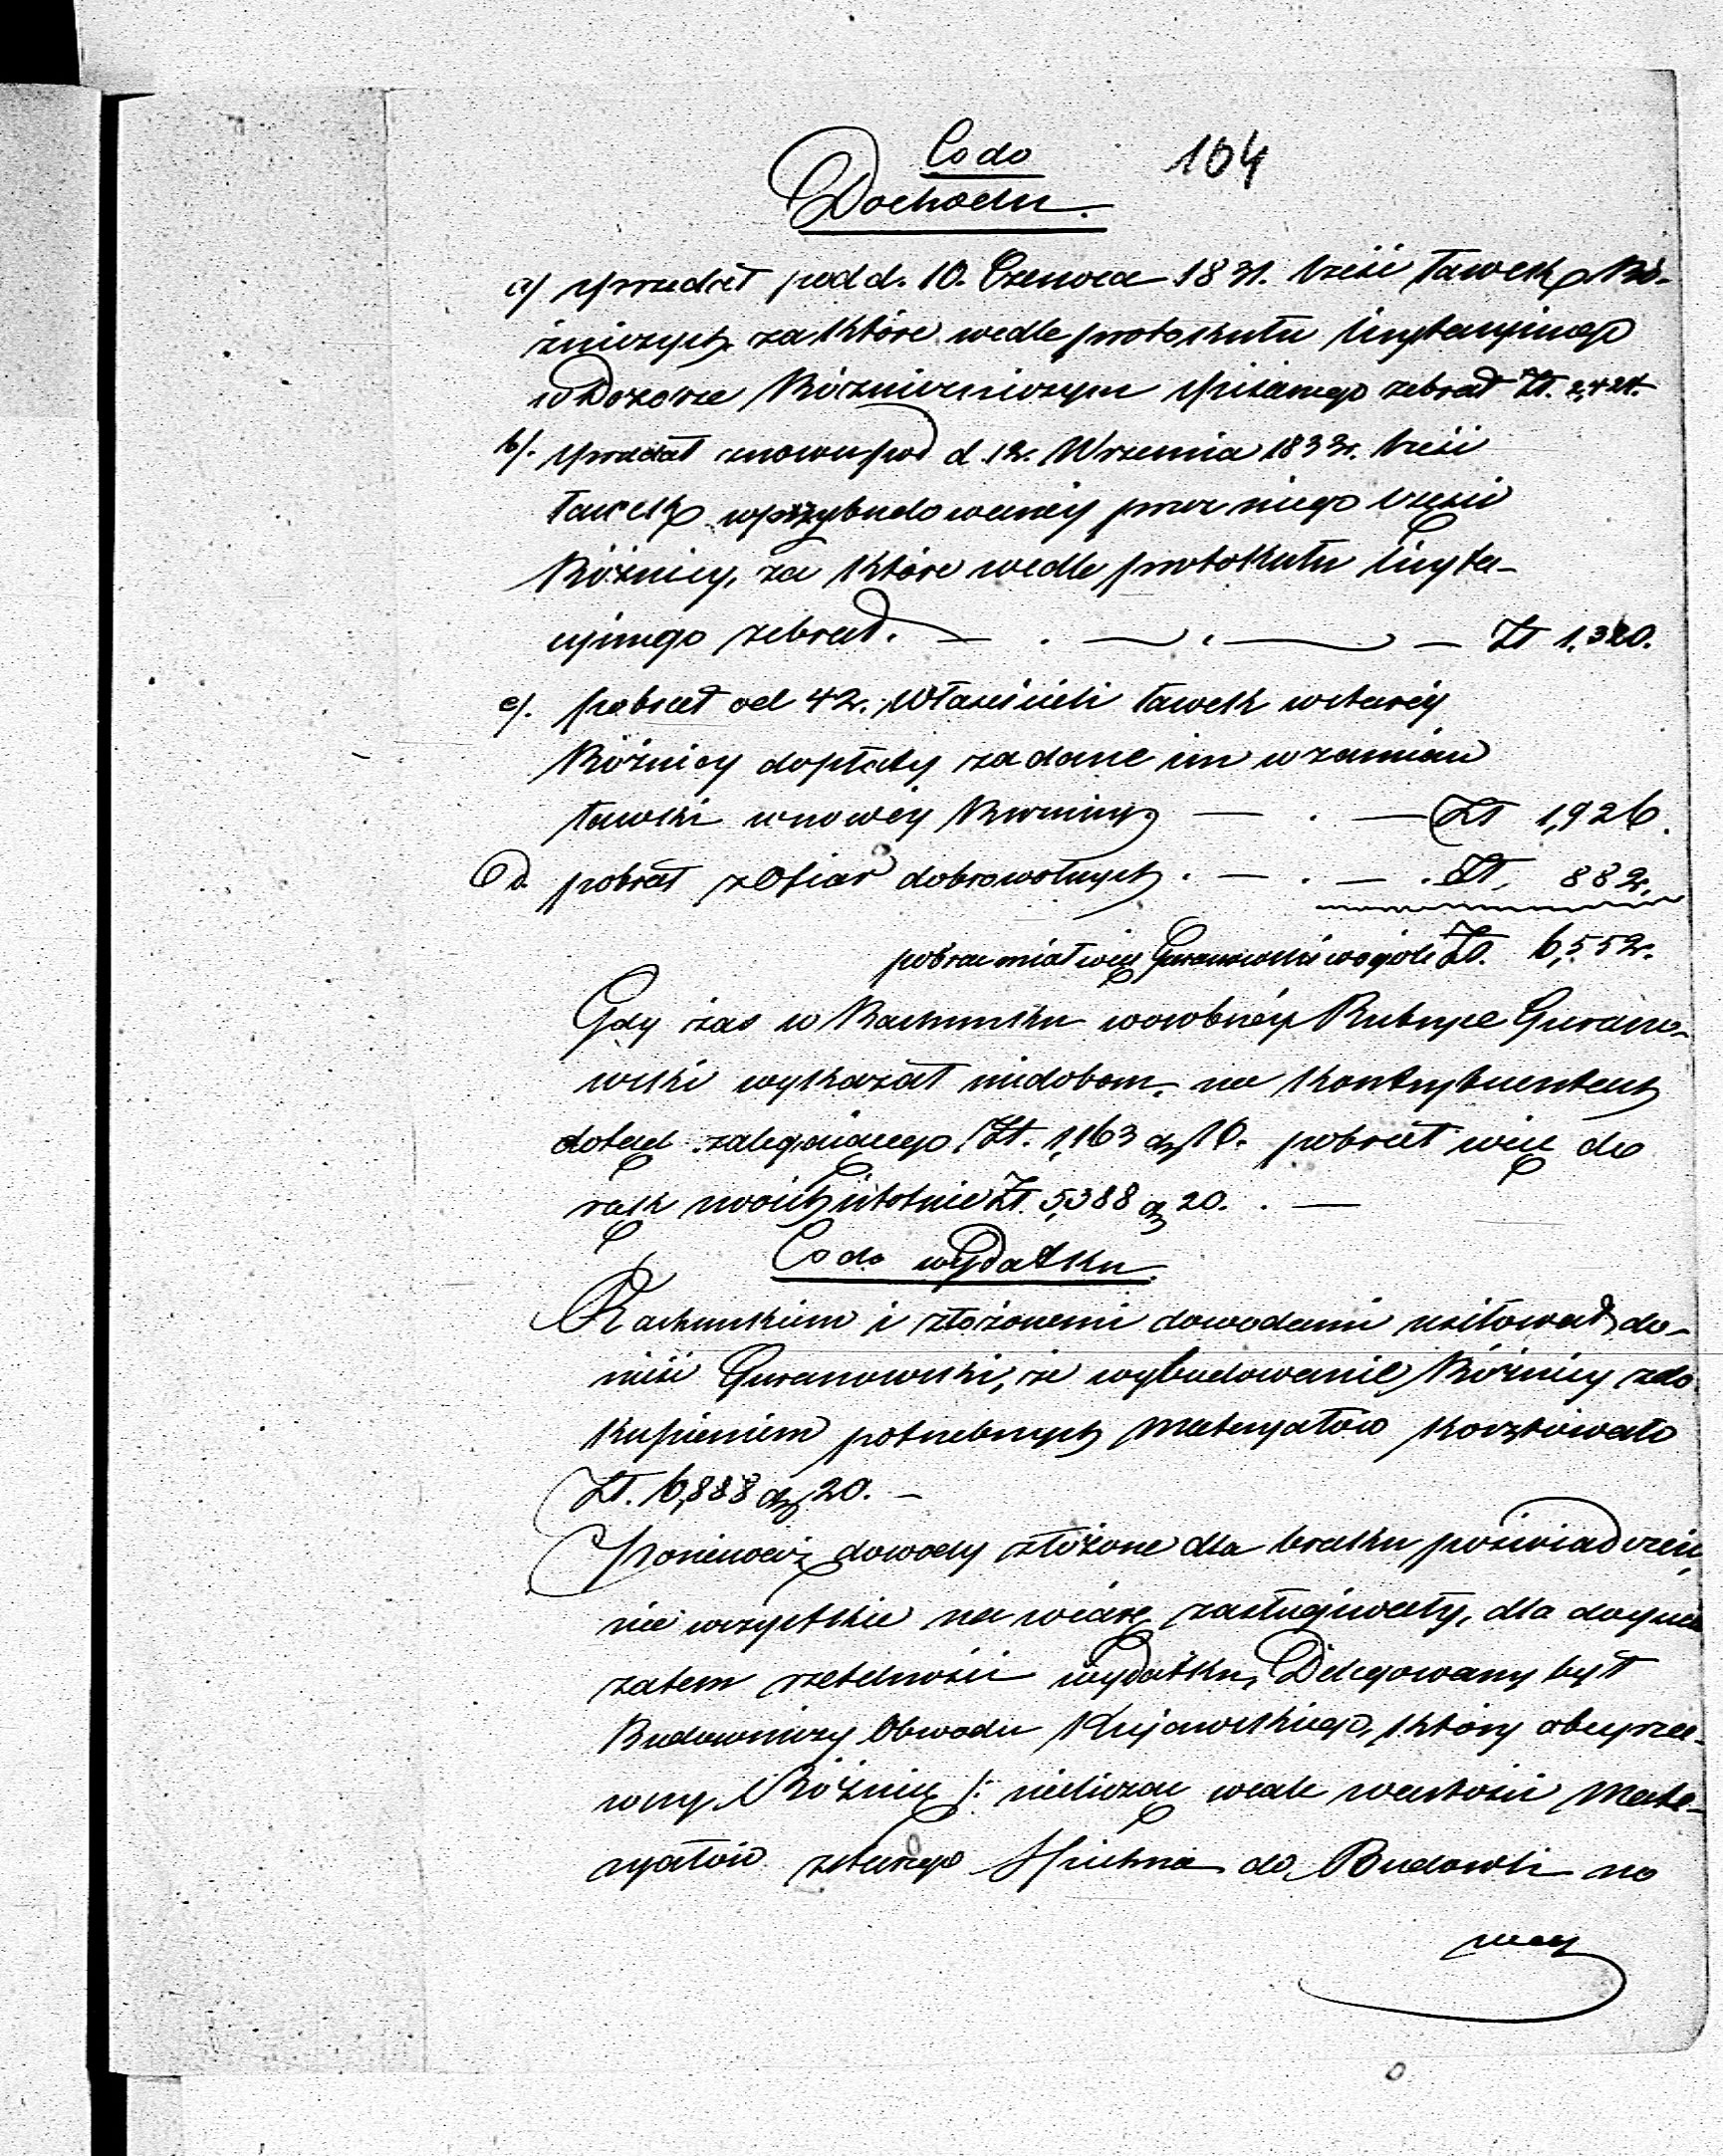 Co do
104
Dochodu.
a/ sprzedał pod d. 10. Czerwca 1831. część ławek Bó-
żniczych za które wedle protokułu licytacyjnego
w Dozorze Bózniczniczym spisanego zebrał Zł. 2,424.
b/. sprzedał znowu pod d. 12. Wrzesnia 1833r. część
ławek w przybudowanéy przez niego części
Bóżnicy, za które wedle protokułu licyta-
cyinego zebrał. — . — . — — Zł 1,320.
c/. pobrał od 42. Właścicieli ławek w staréy
Bóżnicy dopłaty za dane im w zamian
ławki w nowéy Bożnicy — . — Zł 1,926.
d. pobrał z Ofiar dobrowolnych. — . — . Zł. 882.
pobrać miał więc Guranowski w ogóle Zł. 6,552.
Gdy zas w Rachunku w osobnéy Rubryce Gurano-
wski wykazał niedobom. na kontrybuentach
dotąd zalegaiącego Zł. 1,163 gr 10. pobrał więc do
rąk swoich istotnie Zł. 5,388 gr 20. . —
Co do wydatku.
Rachunkiem i złożonemi dowodami usiłował do-
nieść Guranowski, że wybudowanie Bóżnicy z do
kupieniem potrzebnych materyałów kosztowało
Zł. 6,888 gr 20. —
Ponieważ dowody złożone dla braku poświadczeń,
nie wszystkie na wiarę zasługiwały, dla doyścia
zatem rzetelności wydatku, Delegowany był
Budowniczy Obwodu Kujawskiego, który obeyrza-
wszy Bóżnicę /: nielicząc wcale wartości mate-
ryałów z starego Spichrza do Budowli no
wey